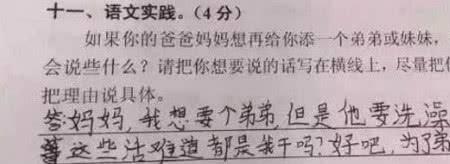 十一、语文实践。(4分)
如果你的爸爸妈妈想再给你添一个弟弟或妹妹,
会说些什么?请把你想要说的话写在横线上,尽量把
把理由说具体。
答:妈妈,我想要个弟弟,但是他要洗澡
等这些活难道都是我干吗?好吧,为了弟